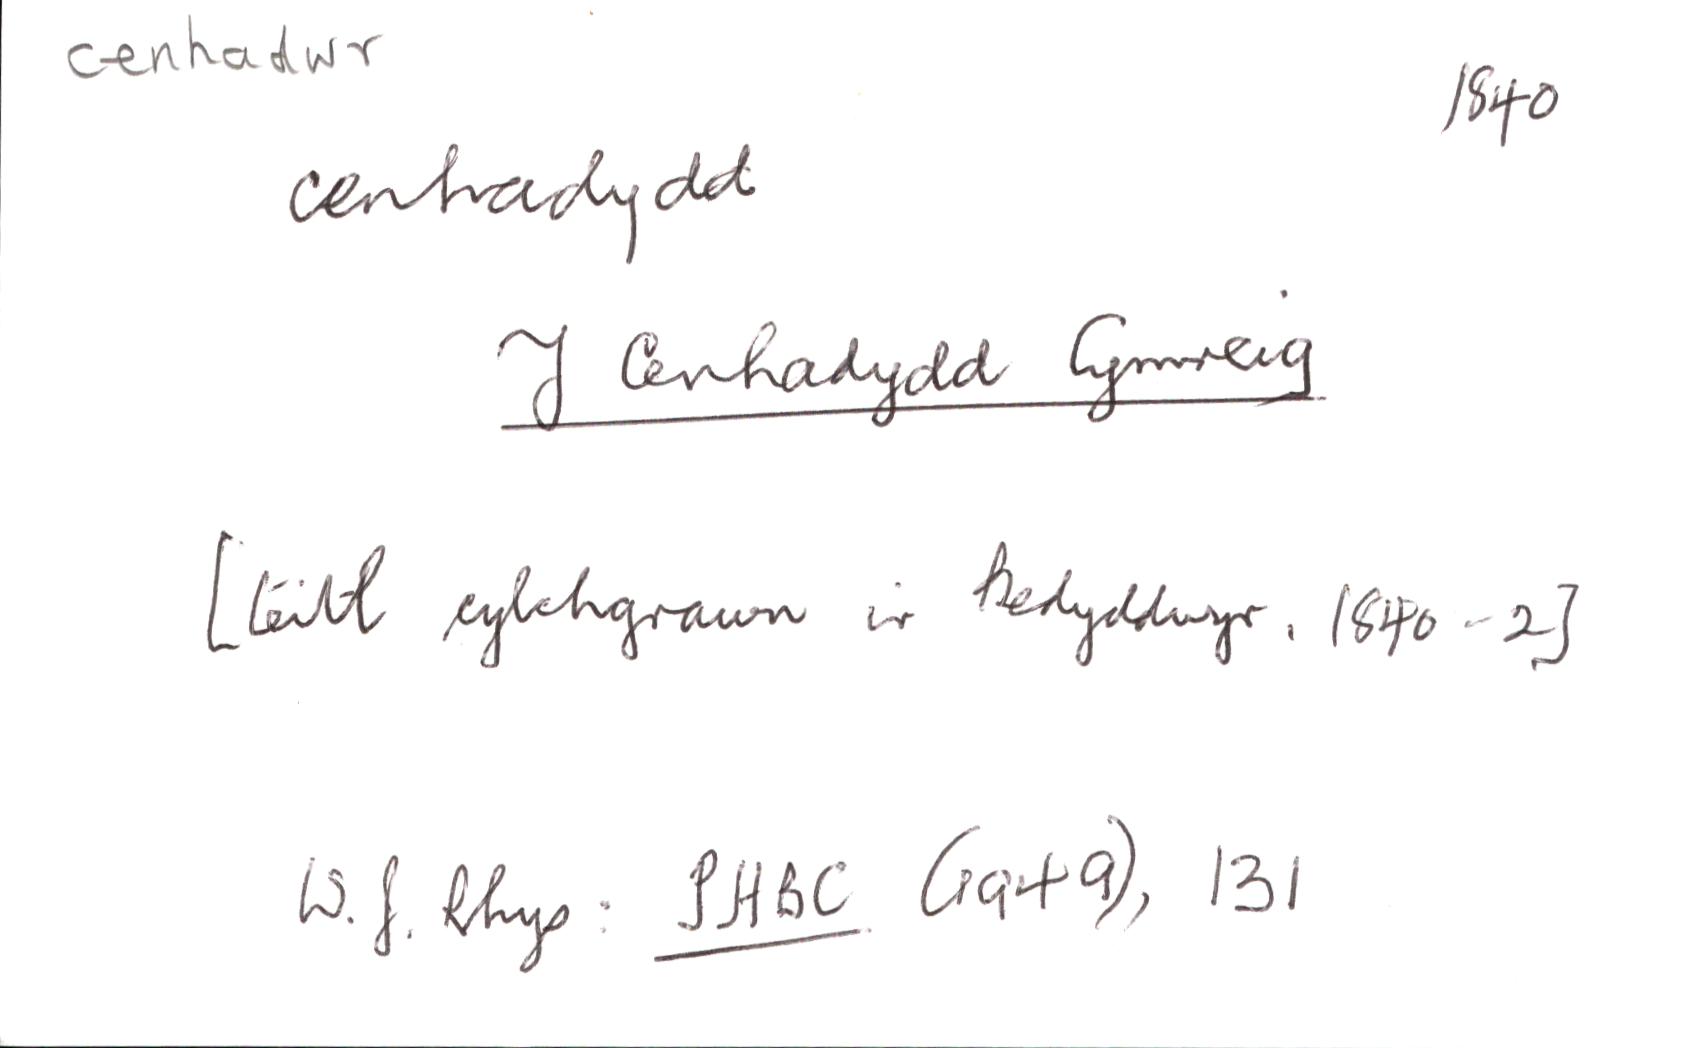 cenhadwr
1840
cenhadydd
Y Cenhadydd Cymreig
[teitl cylchgrawn i'r Bedyddwyr, 1840-2]
W. J. Rhys: PHBC (1949), 131